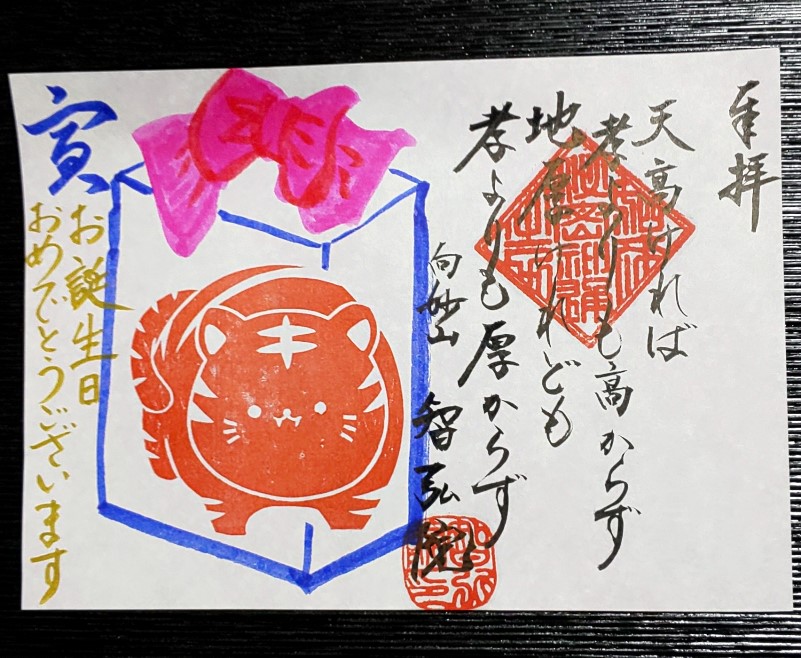 奉拝
天高ければ
孝よりも高からず
地厚けれども
孝よりも厚からず
向妙山 智弘院
寅
お誕生日
おめでとうございます